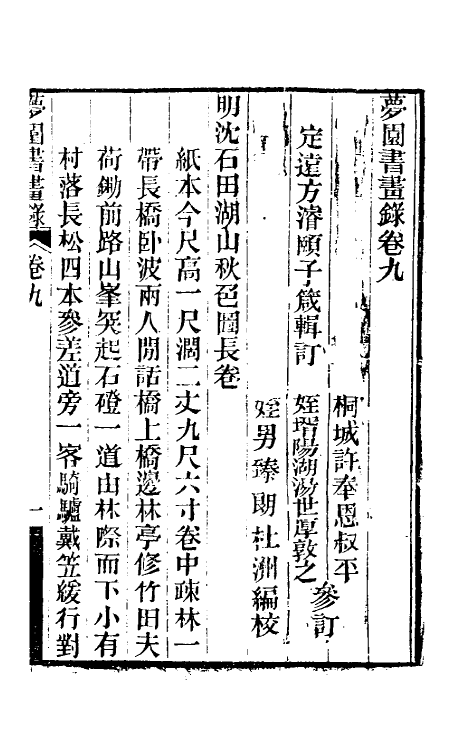 夢園書畫錄卷九
桐城許奉恩叔平
定遠方濬頤子箴輯訂
姪壻陽湖湯世厚敦之
參訂
姪男臻朗杜洲編校
明沈石田湖山秋色圖長卷
紙本今尺高一尺濶二丈九尺六寸卷中疎林一
帶長橋臥波兩人閒話橋上橋邊林亭修竹田夫
荷鋤前路山峯突起石磴一道山林際而下小有
村落長松四本參差道旁一客騎驢戴笠緩行對
夢園書畫錄
卷九
一